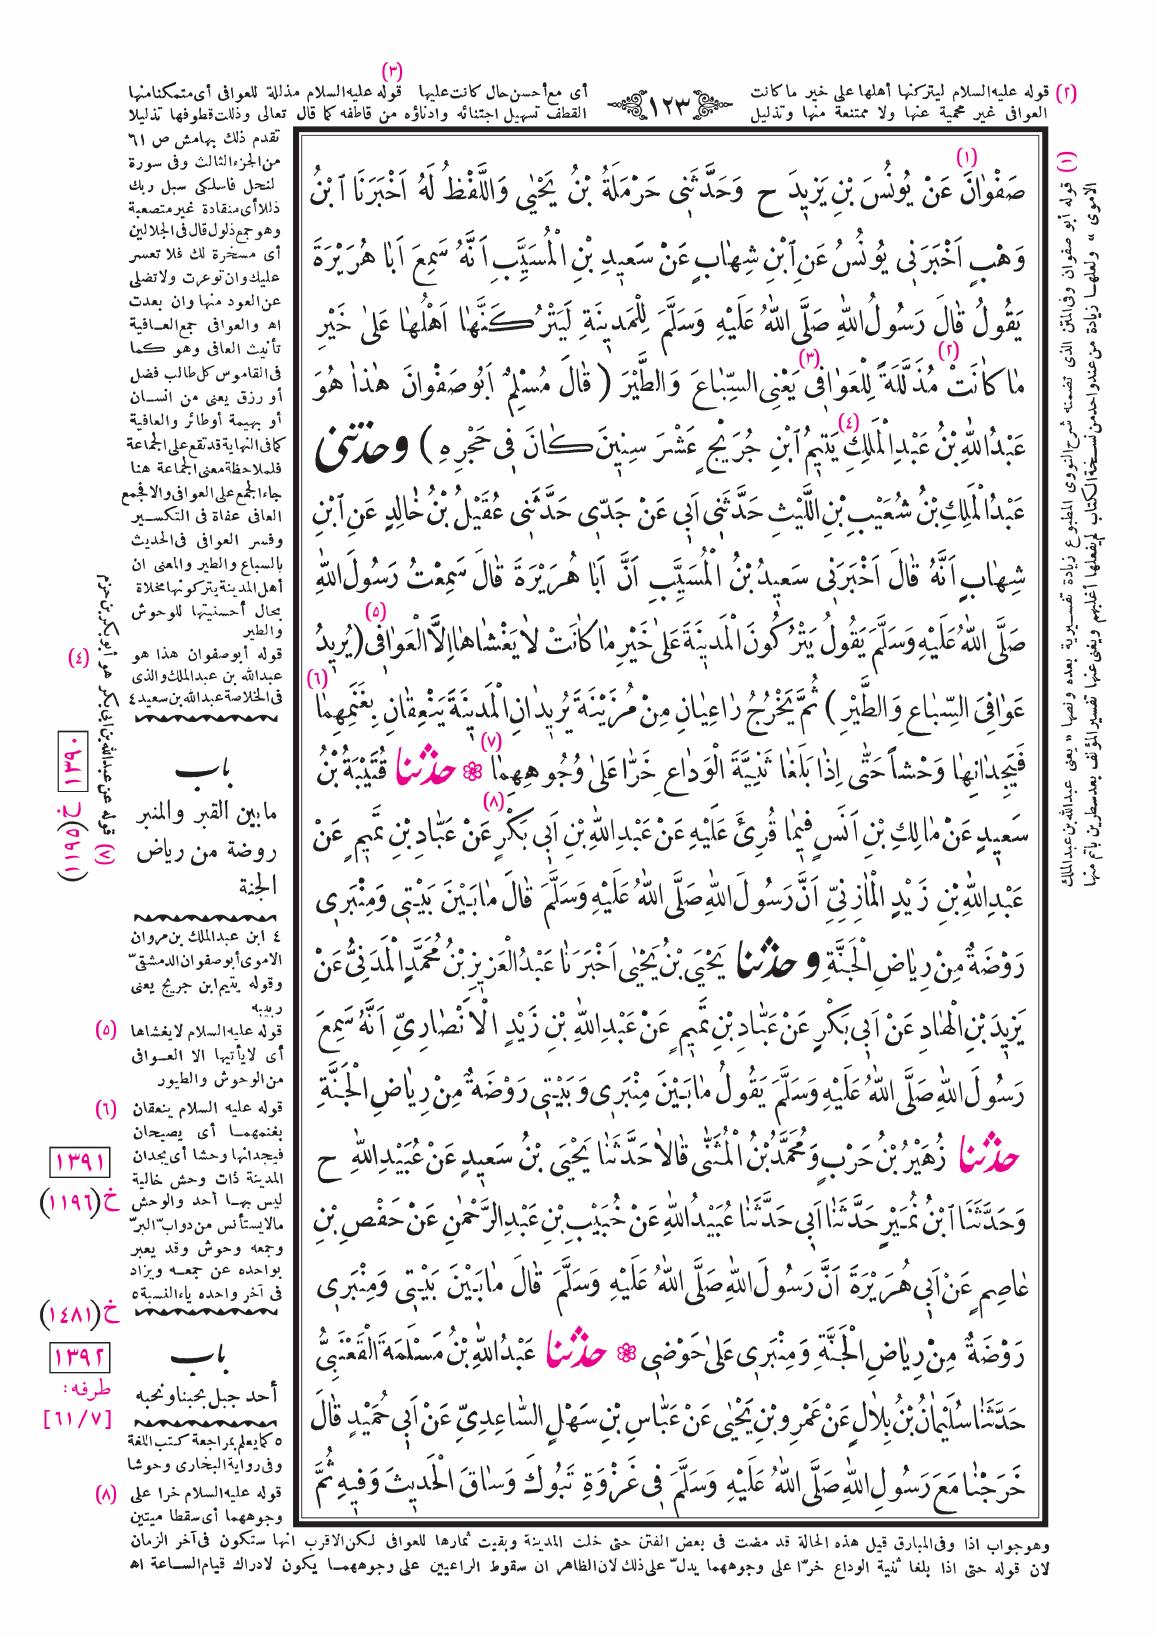 (٣)
(٢) قوله عليه السلام ليتركنها أهلها على خير ما كانت
أى مع أحسن حال كانت عليها قوله عليه السلام مذللة للعوافى أى متمكنا منها
١٢٣
العوافى غير محمية عنها ولا ممتنعة منها وتذليل
القطف تسهيل اجتنائه وادناؤه من قاطفه كما قال تعالى وذللت قطوفها تذليلا
(١)
صَفْوَانَ عَنْ يُونُسَ بْنِ يَزِيدَ ح وَحَدَّثَنِى حَرْمَلَةُ بْنُ يَحْيٰى وَاللَّفْظُ لَهُ اَخْبَرَنَا ابْنُ
وَهْبٍ اَخْبَرَنِى يُونُسُ عَنِ ابْنِ شِهَابٍ عَنْ سَعِيدِ بْنِ الْمُسَيَّبِ اَنَّهُ سَمِعَ اَبَا هُرَيْرَةَ
يَقُولُ قَالَ رَسُولُ اللّٰهِ صَلَّى اللّٰهُ عَلَيْهِ وَسَلَّمَ لِلْمَدِينَةِ لَيَتْرُكَنَّهَا اَهْلُهَا عَلىٰ خَيْرِ
(٢) (٣)
مَا كَانَتْ مُذَلَّلَةً لِلْعَوَافِى يَعْنِى السِّبَاعَ وَالطَّيْرَ ( قَالَ مُسْلِمٌ اَبُو صَفْوَانَ هٰذَا هُوَ
(٤)
عَبْدُ اللّٰهِ بْنُ عَبْدِ الْمَلِكِ يَتِيمُ ابْنِ جُرَيْجٍ عَشْرَ سِنِينَ كَانَ فِى حَجْرِهِ ) وحدثنى
عَبْدُ الْمَلِكِ بْنُ شُعَيْبِ بْنِ اللَّيْثِ حَدَّثَنِى اَبِى عَنْ جَدِّى حَدَّثَنِى عُقَيْلُ بْنُ خَالِدٍ عَنِ ابْنِ
شِهَابٍ اَنَّهُ قَالَ اَخْبَرَنِى سَعِيدُ بْنُ الْمُسَيَّبِ اَنَّ اَبَا هُرَيْرَةَ قَالَ سَمِعْتُ رَسُولَ اللّٰهِ
(٥)
صَلَّى اللّٰهُ عَلَيْهِ وَسَلَّمَ يَقُولُ يَتْرُكُونَ الْمَدِينَةَ عَلىٰ خَيْرِ مَا كَانَتْ لاٰ يَغْشَاهَا اِلاَّ الْعَوَافِى (يُرِيدُ
(٦)
عَوَافِىَ السِّبَاعِ وَالطَّيْرِ ) ثُمَّ يَخْرُجُ رَاعِيَانِ مِنْ مُزَيْنَةَ يُرِيدَانِ الْمَدِينَةَ يَنْعِقَانِ بِغَنَمِهِمَا
(٧)
فَيَجِدَانِهَا وَحْشاً حَتّٰى اِذَا بَلَغَا ثَنِيَّةَ الْوَدَاعِ خَرَّا عَلىٰ وُجُوهِهِمَا ۞ حدثنا قُتَيْبَةُ بْنُ
(٨)
سَعِيدٍ عَنْ مَالِكِ بْنِ اَنَسٍ فِيمَا قُرِئَ عَلَيْهِ عَنْ عَبْدِ اللّٰهِ بْنِ اَبِى بَكْرٍ عَنْ عَبَّادِ بْنِ تَمِيمٍ عَنْ
عَبْدِ اللّٰهِ بْنِ زَيْدٍ الْمَازِنِىِّ اَنَّ رَسُولَ اللّٰهِ صَلَّى اللّٰهُ عَلَيْهِ وَسَلَّمَ قَالَ مَا بَيْنَ بَيْتِى وَمِنْبَرِى
رَوْضَةٌ مِنْ رِيَاضِ الْجَنَّةِ وحدثنا يَحْيَى بْنُ يَحْيٰى اَخْبَرَنَا عَبْدُ الْعَزِيزِ بْنُ مُحَمَّدٍ الْمَدَنِىُّ عَنْ
يَزِيدَ بْنِ الْهَادِ عَنْ اَبِى بَكْرٍ عَنْ عَبَّادِ بْنِ تَمِيمٍ عَنْ عَبْدِ اللّٰهِ بْنِ زَيْدٍ الْاَنْصَارِىِّ اَنَّهُ سَمِعَ
رَسُولَ اللّٰهِ صَلَّى اللّٰهُ عَلَيْهِ وَسَلَّمَ يَقُولُ مَا بَيْنَ مِنْبَرِى وَبَيْتِى رَوْضَةٌ مِنْ رِيَاضِ الْجَنَّةِ
حدثنا زُهَيْرُ بْنُ حَرْبٍ وَمُحَمَّدُ بْنُ الْمُثَنّٰى قَالاَ حَدَّثَنَا يَحْيَى بْنُ سَعِيدٍ عَنْ عُبَيْدِ اللّٰهِ ح
وَحَدَّثَنَا ابْنُ نُمَيْرٍ حَدَّثَنَا اَبِى حَدَّثَنَا عُبَيْدُ اللّٰهِ عَنْ خُبَيْبِ بْنِ عَبْدِ الرَّحْمٰنِ عَنْ حَفْصِ بْنِ
عَاصِمٍ عَنْ اَبِى هُرَيْرَةَ اَنَّ رَسُولَ اللّٰهِ صَلَّى اللّٰهُ عَلَيْهِ وَسَلَّمَ قَالَ مَا بَيْنَ بَيْتِى وَمِنْبَرِى
رَوْضَةٌ مِنْ رِيَاضِ الْجَنَّةِ وَمِنْبَرِى عَلىٰ حَوْضِى ۞ حدثنا عَبْدُ اللّٰهِ بْنُ مَسْلَمَةَ الْقَعْنَبِىُّ
حَدَّثَنَا سُلَيْمَانُ بْنُ بِلَالٍ عَنْ عَمْرِو بْنِ يَحْيٰى عَنْ عَبَّاسِ بْنِ سَهْلٍ السَّاعِدِىِّ عَنْ اَبِى حُمَيْدٍ قَالَ
خَرَجْنَا مَعَ رَسُولِ اللّٰهِ صَلَّى اللّٰهُ عَلَيْهِ وَسَلَّمَ فِى غَزْوَةِ تَبُوكَ وَسَاقَ الْحَدِيثَ وَفِيهِ ثُمَّ
(١) قوله أبو صفوان وفى المتن الذى تضمنه شرح النووى المطبوع زيادة تفسيرية بعده ونصها « يعنى عبدالله بن عبدالملك
الاموى » ولعلها زيادة من عند واحد من نسخة الكتاب لم يفعلها أغلبهم ويغنى عنها تفسير المؤلف بعد سطرين باتم منها
تقدم ذلك بهامش ص ٦١
من الجزء الثالث وفى سورة
لنحل فاسلكى سبل ربك
ذللا أى منقادة غير متصعبة
وهو جمع ذلول قال فى الجلالين
أى مسخرة لك فلا تعسر
عليك وان توعرت ولا تضلى
عن العود منها وان بعدت
اه والعوافى جمع العـافية
تأنيث العافى وهو كما
فى القاموس كل طالب فضل
أو رزق يعنى من انسان
أو بهيمة أو طائر والعافية
كما فى النهاية قد تقع على الجماعة
فلملاحظة معنى الجماعة هنا
جاء الجمع على العوافى والا فجمع
العافى عفاة فى التكسير
وفسر العوافى فى الحديث
بالسباع والطير والمعنى ان
أهل المدينة يتركونها مخلاة
بحال أحسنيتها للوحوش
والطير
(٤) قوله أبو صفوان هذا هو
عبدالله بن عبدالملك والذى
فى الخلاصة عبدالله بن سعيد ٤
(٧) قوله عن عبدالله بن ابى بكر هو أبو بكر بن حزم
١٣٩٠
خ (١١٩٥)
باب
ما بين القبر والمنبر
روضة من رياض
الجنة
٤ ابن عبدالملك بن مروان
الاموى أبو صفوان الدمشقى
وقوله يتيم ابن جريج يعنى
ربيبه
(٥) قوله عليه السلام لا يغشاها
أى لا يأتيها الا العـوافى
من الوحوش والطيور
(٦) قوله عليه السلام ينعقان
بغنمهمـا أى يصيحان
فيجدانها وحشا أى يجدان
المدينة ذات وحش خالية
ليس بهـا أحد والوحش
مالا يستأنس من دواب البر
وجمعه وحوش وقد يعبر
بواحده عن جمعـه ويزاد
فى آخر واحده ياء النسبة ٥
١٣٩١
خ (١١٩٦)
خ (١٤٨١)
باب
أحد جبل يحبنا ونحبه
١٣٩٢
طرفه:
[٦١/٧]
٥ كما يعلم بمراجعة كتب اللغة
وفى رواية البخارى وحوشا
(٨) قوله عليه السلام خرا على
وجوههما أى سقطا ميتين
وهو جواب اذا وفى المبارق قيل هذه الحالة قد مضت فى بعض الفتن حتى خلت المدينة وبقيت ثمارها للعوافى لكن الاقرب انها ستكون فى آخر الزمان
لان قوله حتى اذا بلغا ثنية الوداع خرّا على وجوههما يدلّ على ذلك لان الظاهر ان سقوط الراعيين على وجوههمـا يكون لادراك قيام السـاعة اه